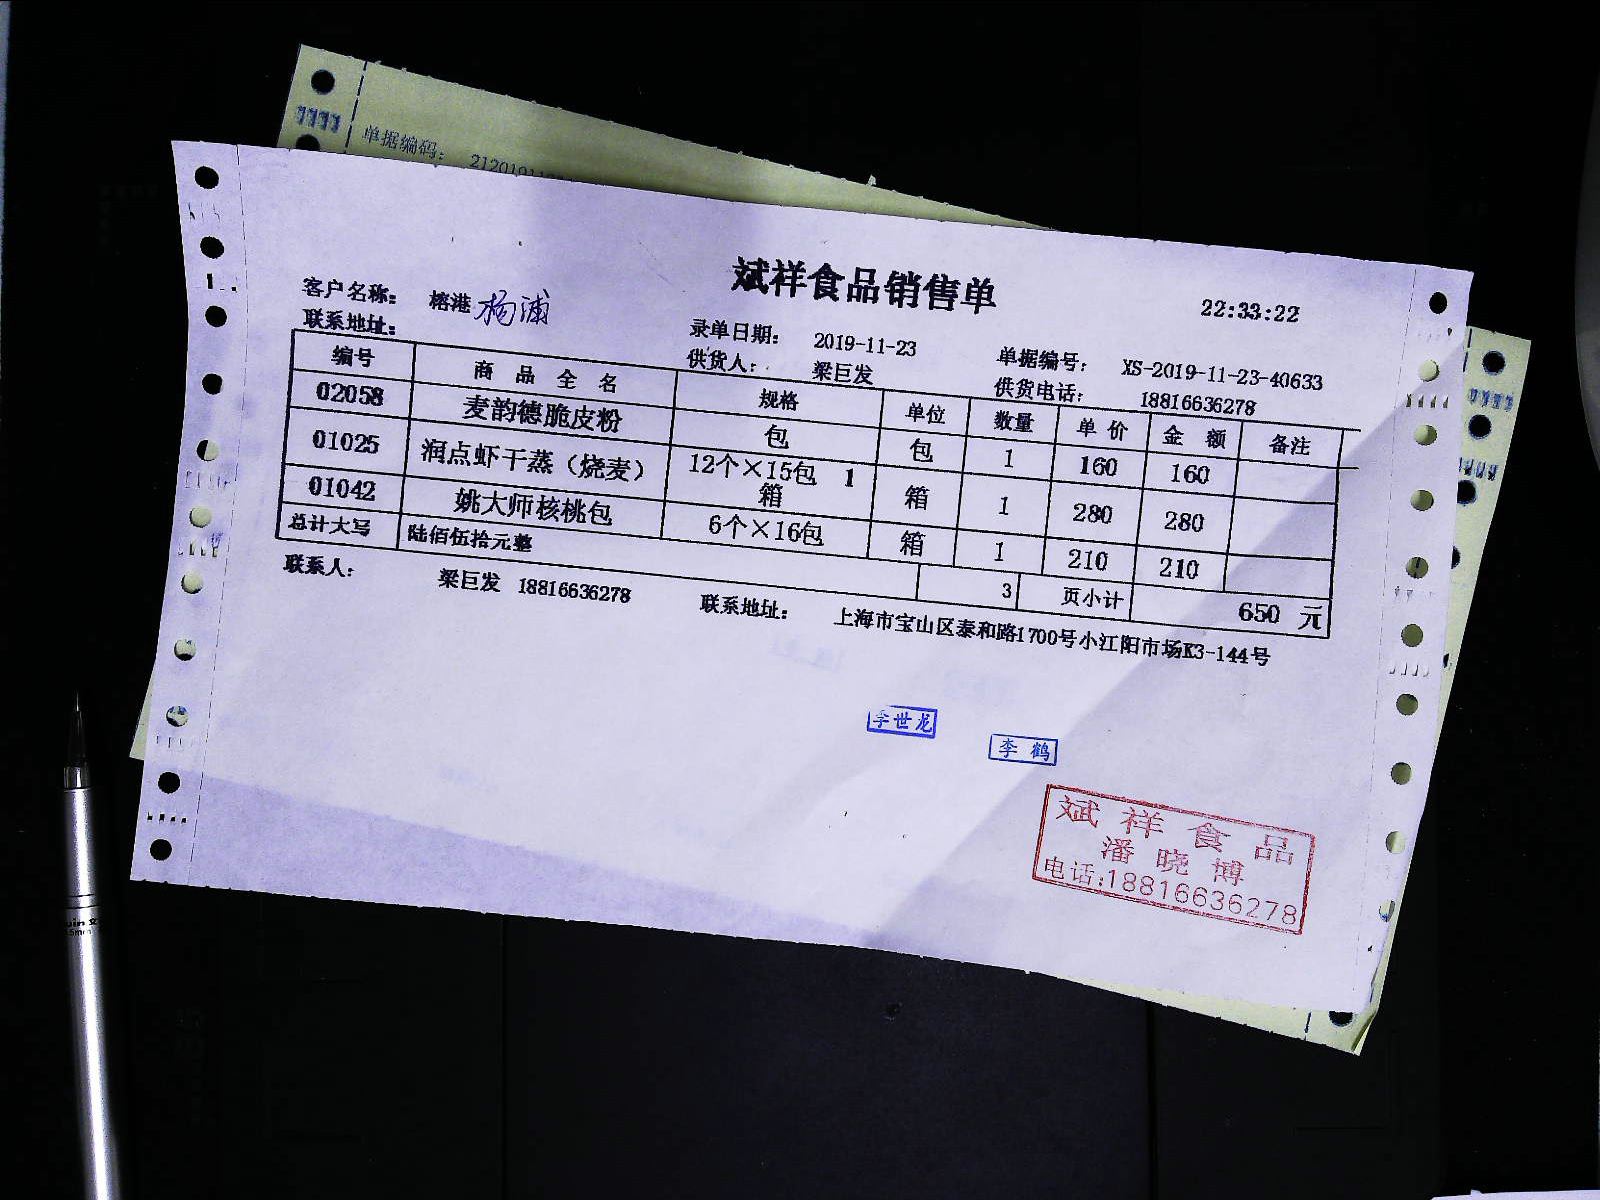 单据编码:
斌祥食品销售单
22:33:22
客户名称: 榕港 杨浦
录单日期: 2019-11-23 单据编号: XS-2019-11-23-40633
联系地址: 供货人: 梁巨发 供货电话: 18816636278
编号 商品全名 规格 单位 数量 单价 金额 备注
02058 麦韵德脆皮粉 包 包 1 160 160
01025 润点虾干蒸（烧麦） 12个×15包 1箱 箱 1 280 280
01042 姚大师核桃包 6个×16包 箱 1 210 210
总计大写 陆佰伍拾元整 3 页小计 650 元
联系人: 梁巨发 18816636278 联系地址: 上海市宝山区泰和路1700号小江阳市场K3-144号
李世龙
李鹤
斌祥食品
潘晓博
电话:18816636278